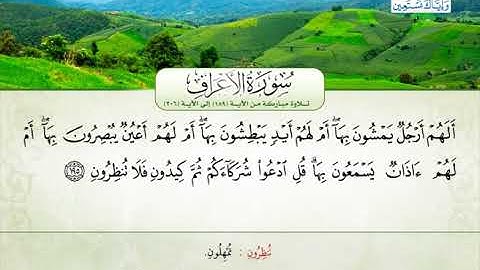 وَإِيَّاكَ نَسْتَعِينُ
سُورَةُ الأَعْرَافِ
تلاوة مباركة من الآية (١٨٩) إلى الآية (٢٠٦)
أَلَهُمْ أَرْجُلٌ يَمْشُونَ بِهَآ ۖ أَمْ لَهُمْ أَيْدٍ يَبْطِشُونَ بِهَآ ۖ أَمْ لَهُمْ أَعْيُنٌ يُبْصِرُونَ بِهَآ ۖ أَمْ
لَهُمْ ءَاذَانٌ يَسْمَعُونَ بِهَا ۗ قُلِ ٱدْعُوا۟ شُرَكَآءَكُمْ ثُمَّ كِيدُونِ فَلَا تُنظِرُونِ ١٩٥
تُنظِرُونِ : تُمْهِلُونِ.